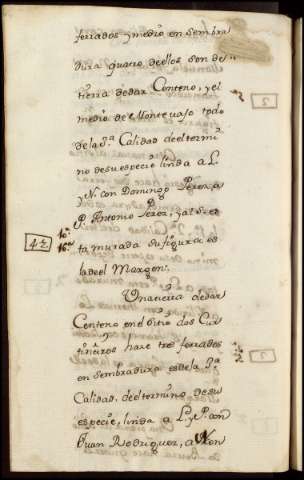 ferrados y medio en sembra
dura quatro de ellos son de
tierra de dar Centeno, y el
medio de Monte vajo todo
de la 3ª Calidad de el termi
no de su especie linda a L.
y N. con Domingo Perez, a
P. Antonio Perez, y al S. es
ta murada su figura es
la de el Margen.
Una tierra de dar
Centeno en el sitio dos Cur
tiñeiros hace tres ferrados
en sembradura es de la 3ª
Calidad de el termino de su
especie, linda a L. y P. con
Juan Rodriguez, a Nor
42